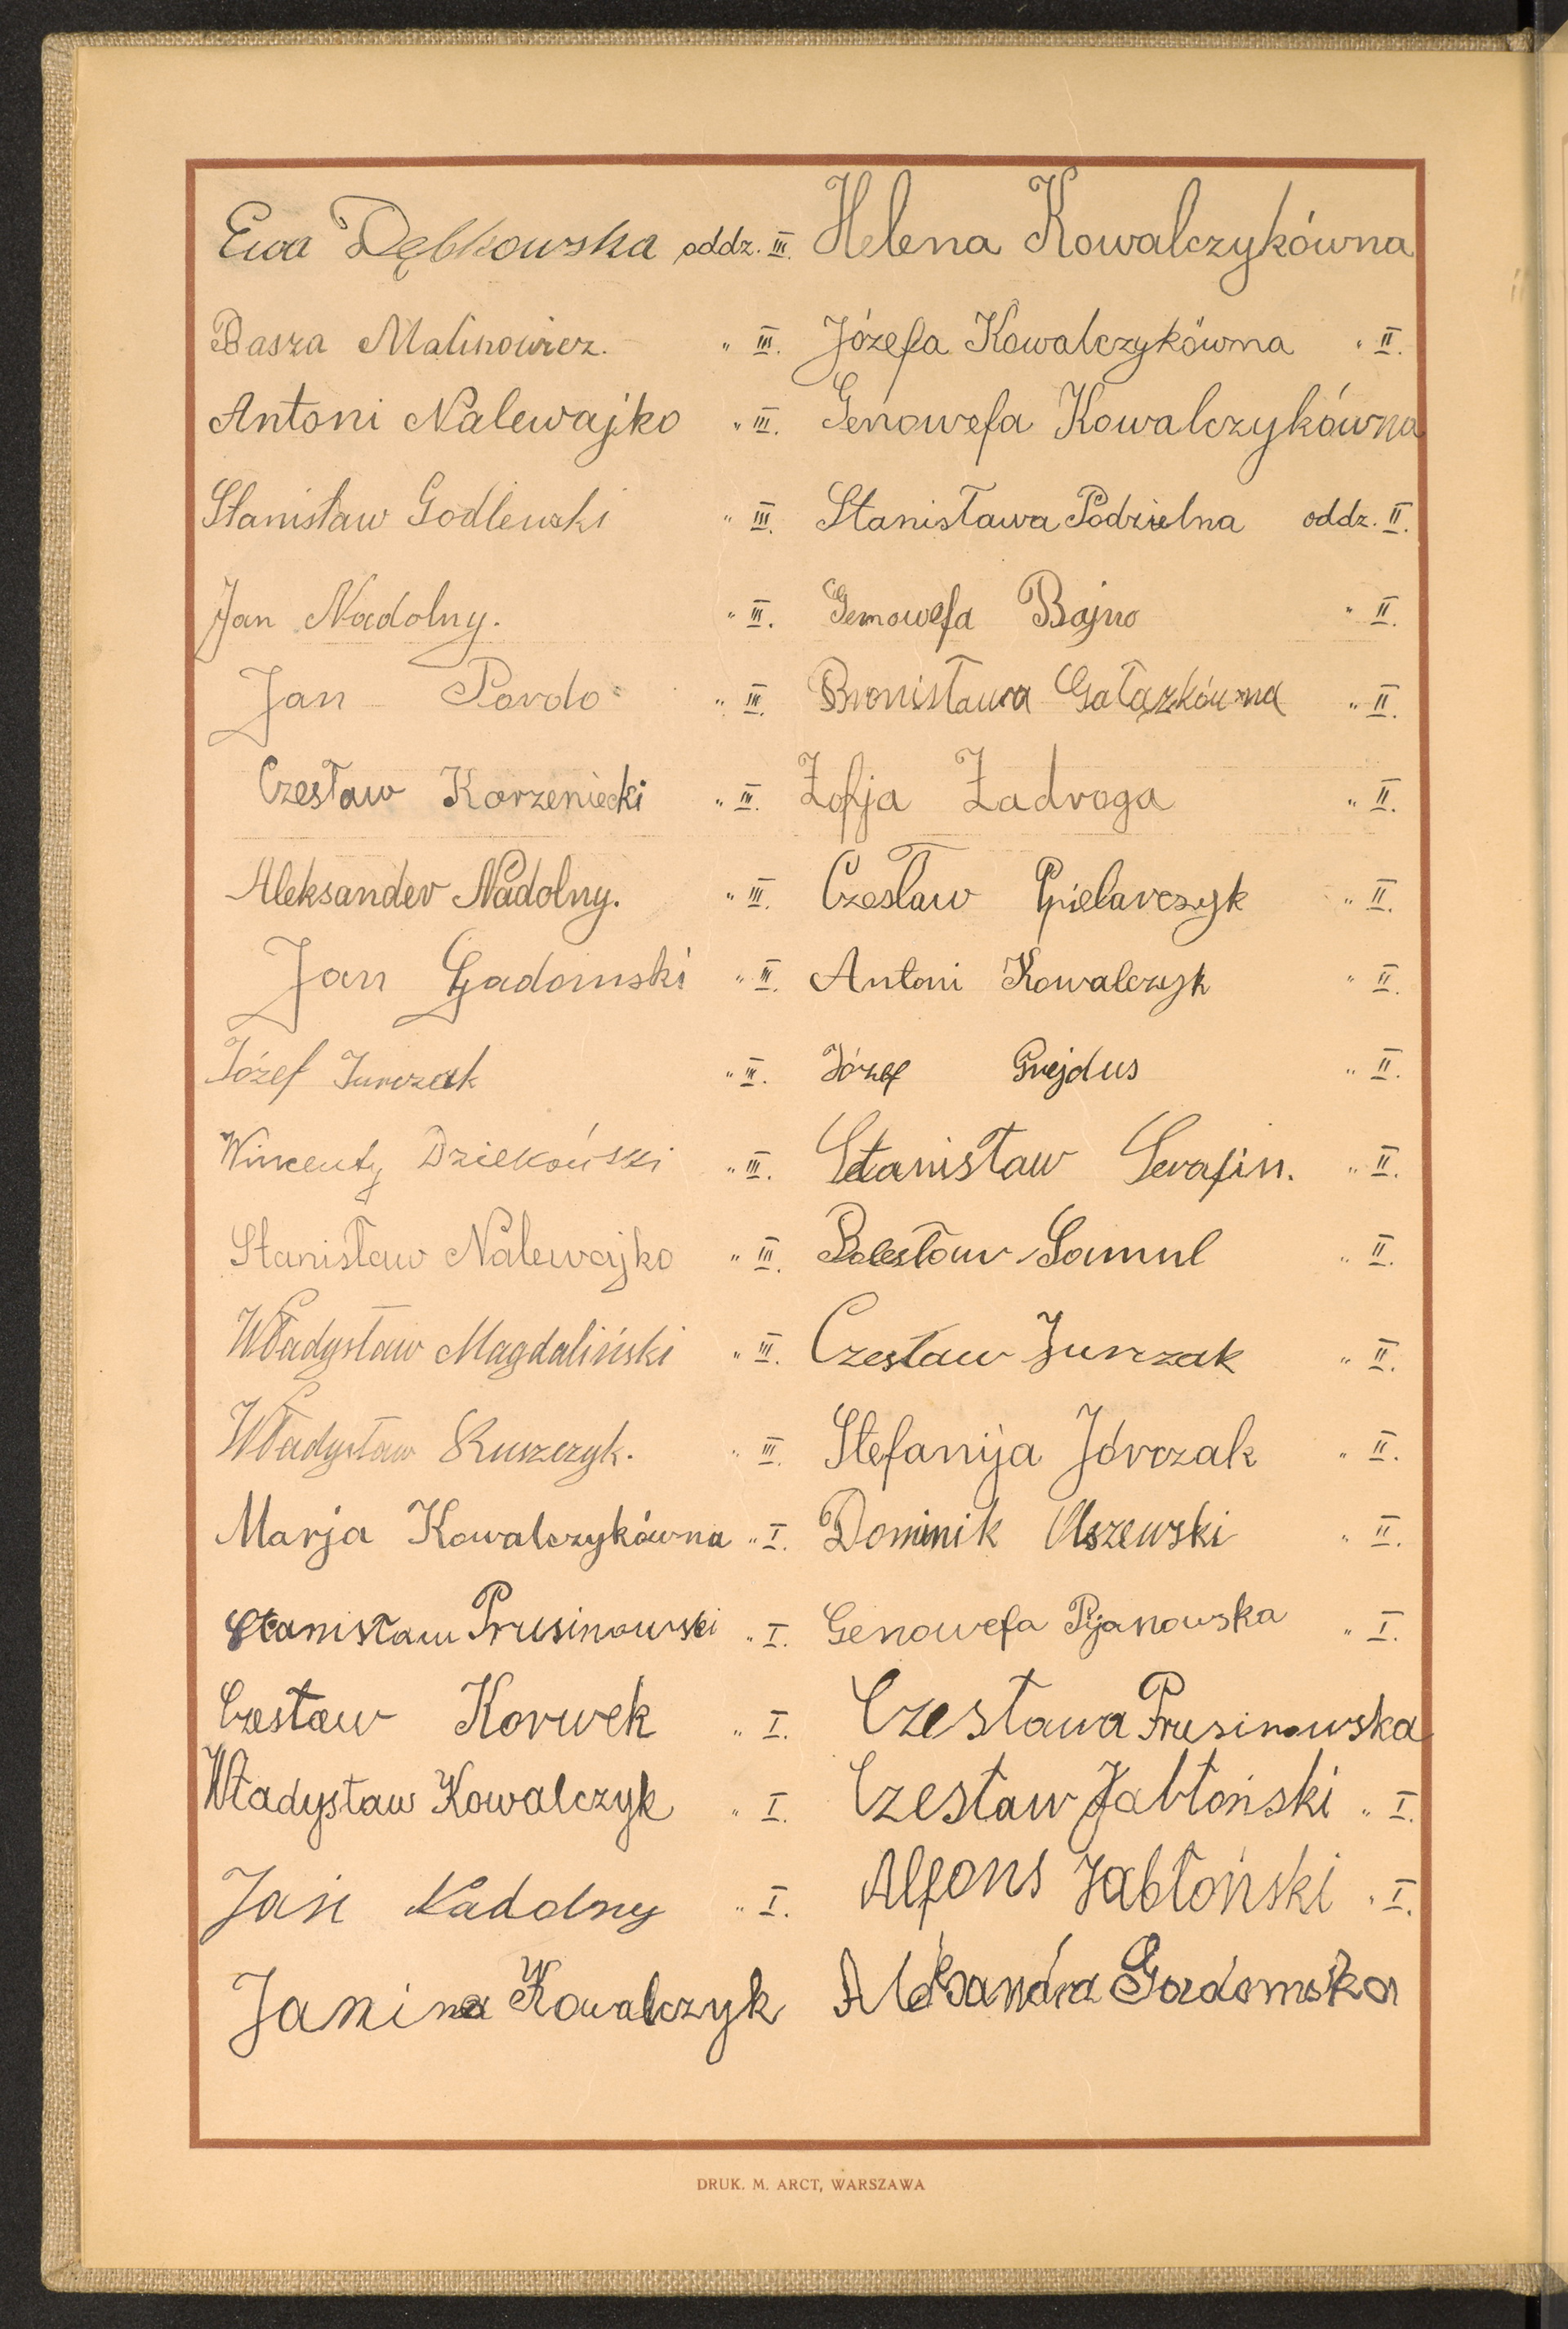 Ewa Dębkowska oddz. III. Helena Kowalczykówna
Basza Malinowicz. " III. Józefa Kowalczykówna " II.
Antoni Nalewajko " III. Genowefa Kowalczykówna
Stanisław Godlewski " III. Stanisława Podzielna oddz. II.
Jan Nadolny. " III. Genowefa Bajno " II.
Jan Pardo " III. Bronisława Gałązkówna " II.
Czesław Korzeniecki " III. Zofja Zadroga " II.
Aleksander Nadolny. " III. Czesław Gpielarczyk " II.
Jan Gadomski " III. Antoni Kowalczyk " II.
Józef Jurczak " III. Józef Grejdus " II.
Wincenty Dziekoński " III. Stanisław Serafin. " II.
Stanisław Nalewajko " III. Bolesław Samul " II.
Władysław Magdaliński " III. Czesław Jurczak " II.
Władysław Ruszczyk. " III. Stefanija Jórczak " II.
Marja Kowalczykówna " I. Dominik Olszewski " II.
Stanisław Prusinowski " I. Genowefa Pijanowska " I.
Czesław Korwek " I. Czesława Prusinowska
Władysław Kowalczyk " I. Czesław Jabłoński " I.
Jan Nadolny " I. Alfons Jabłoński " I.
Janina Kowalczyk Aleksandra Gadomska
DRUK. M. ARCT, WARSZAWA